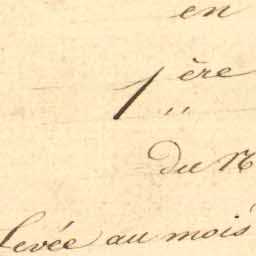 en
1ère
du N
levée au mois